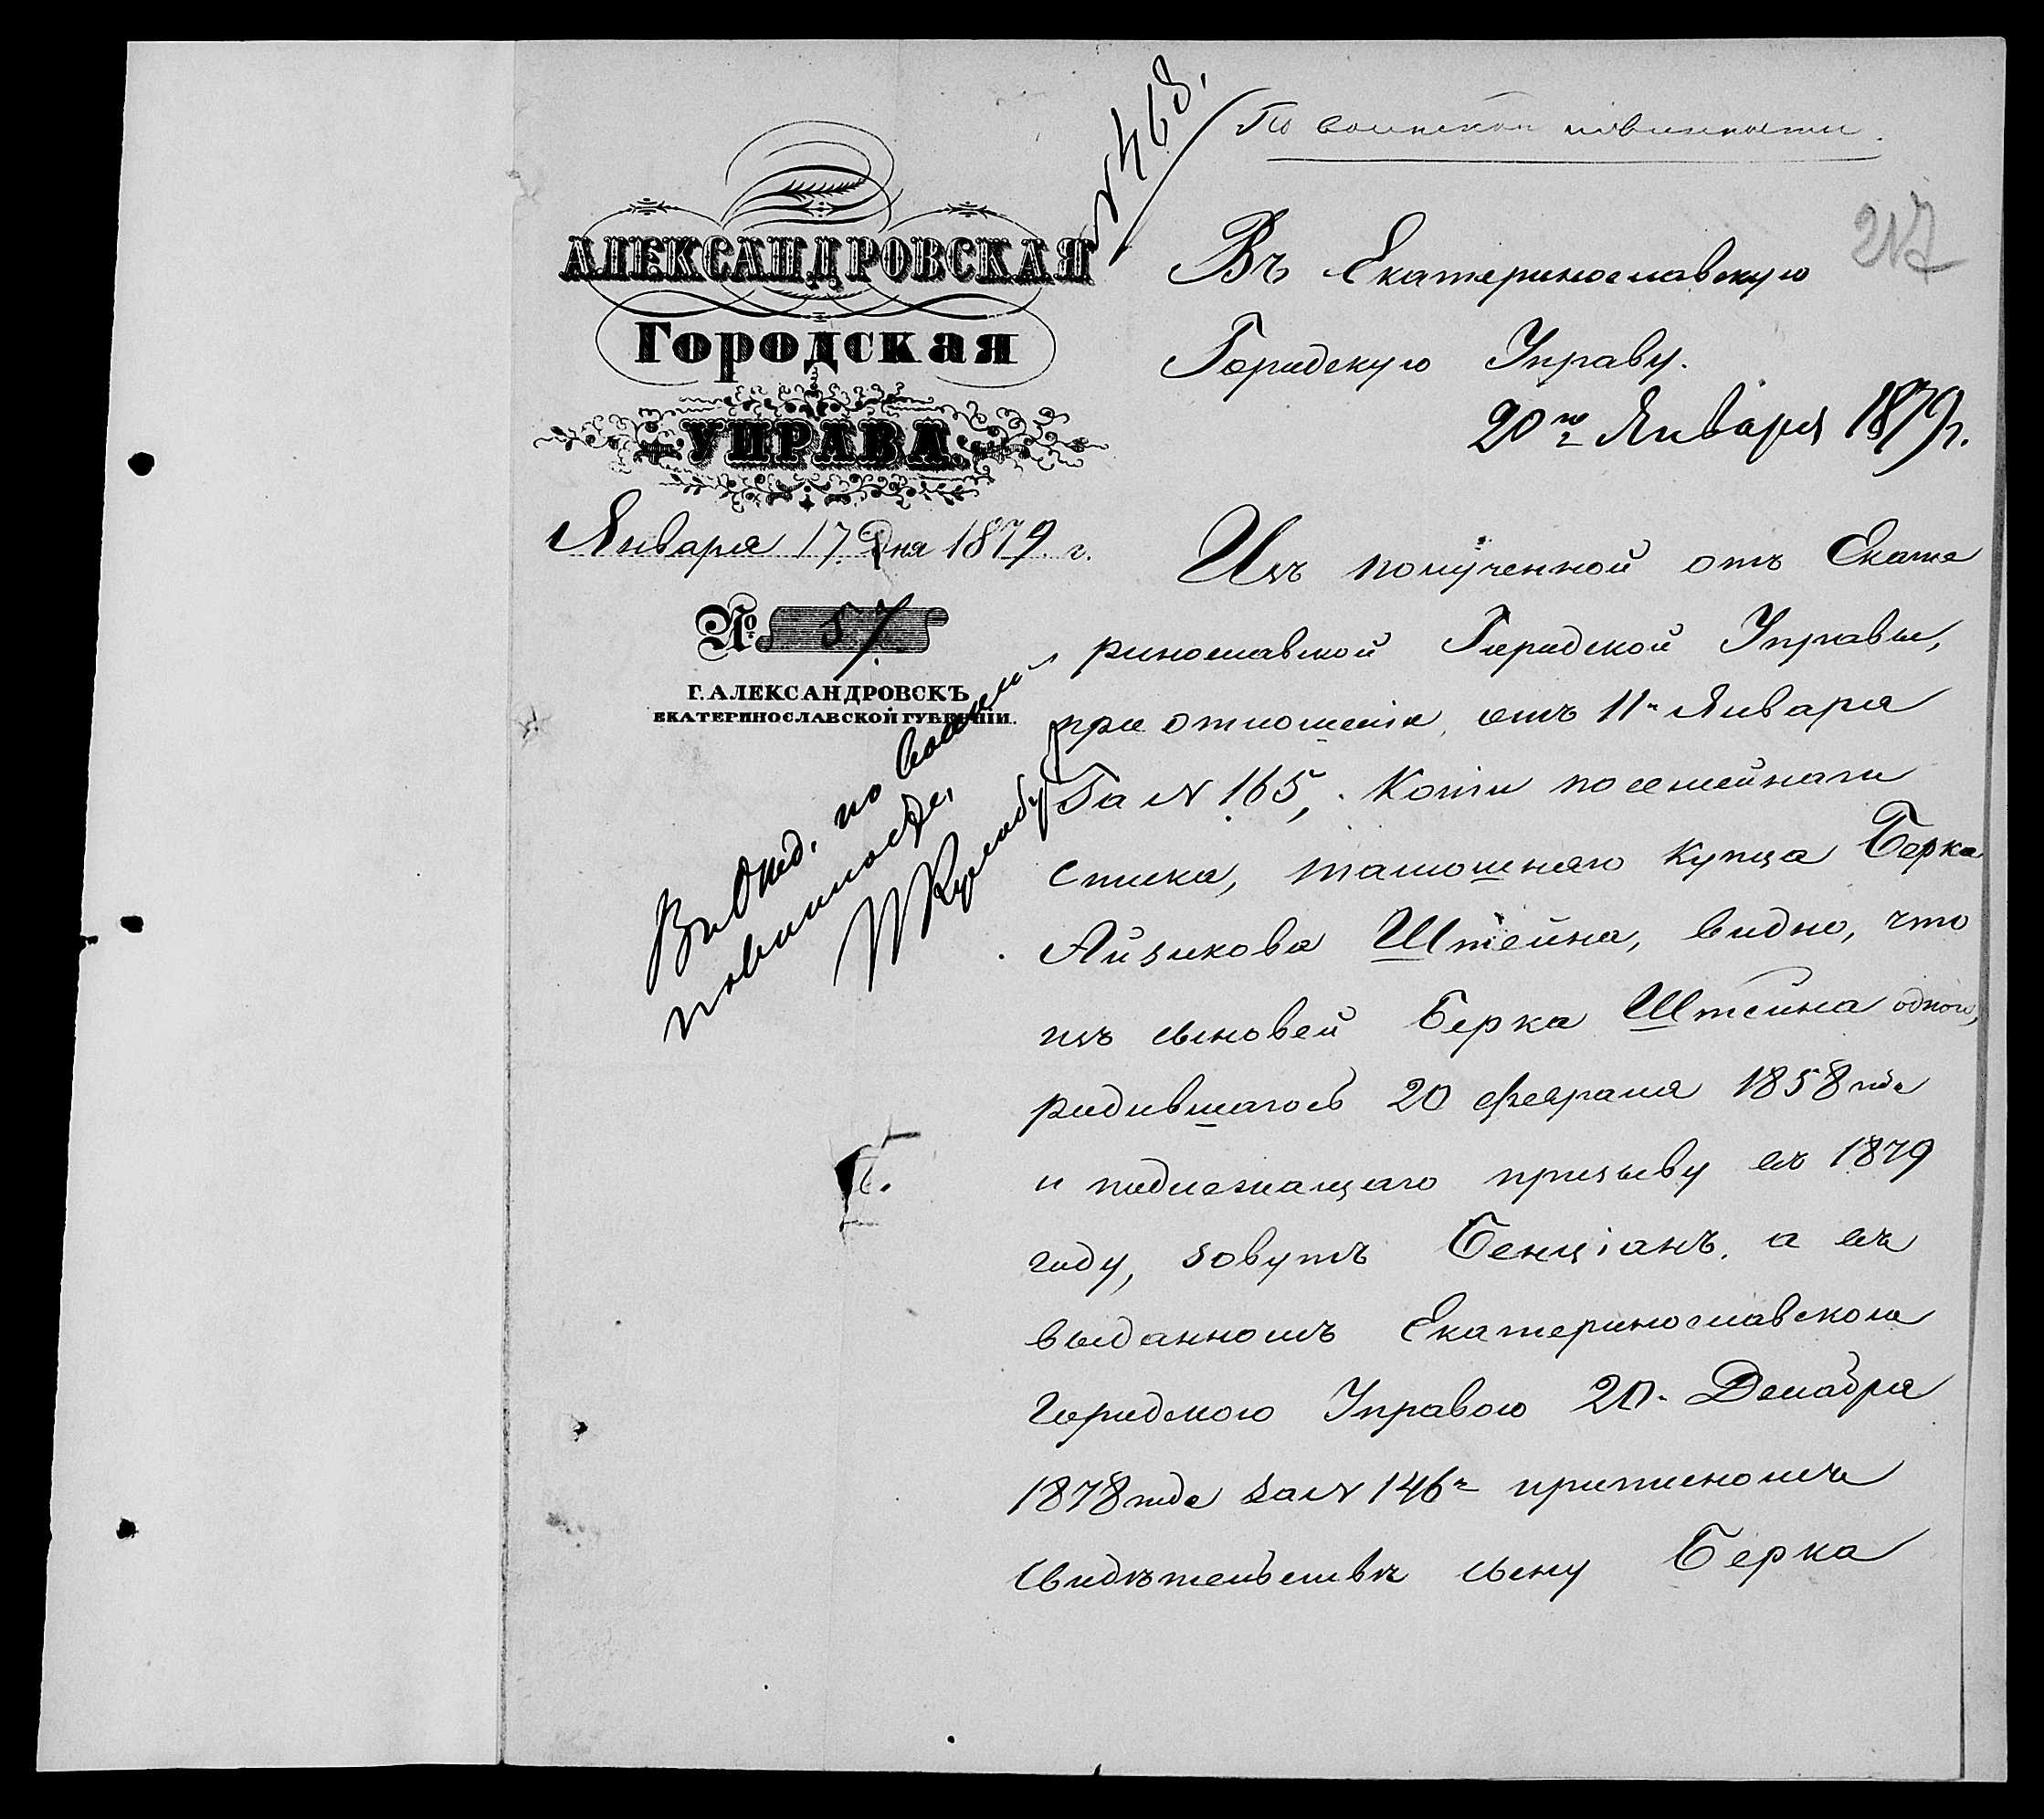 № 468.
По воинской повинности.
217
АЛЕКСАНДРОВСКАЯ
Городская
УПРАВА.
Января 17. Дня 1879. г.
№ 57.
Г. АЛЕКСАНДРОВСКЪ
ЕКАТЕРИНОСЛАВСКОЙ ГУБЕРНІИ.
Въ Екатеринославскую
Городскую Управу.
20го Января 1879 г.
Въ Отд. по воинской
повинности,
Изъ полученной отъ Екате
ринославской Городской Управы,
при отношеніи, отъ 11го Января
за № 165, Копіи посемейнаго
списка, тамошняго купца Берка
Айзикова Штейна, видно, что
изъ сыновей Берка Штейна одного,
родившагось 20 февраля 1858 года
и подлежащаго призыву въ 1879
году, зовутъ Бенціанъ, а въ
выданномъ Екатеринославскою
Городскою Управою 20. Декабря
1878 года за № 146м приписномъ
свидѣтельствѣ сыну Берка